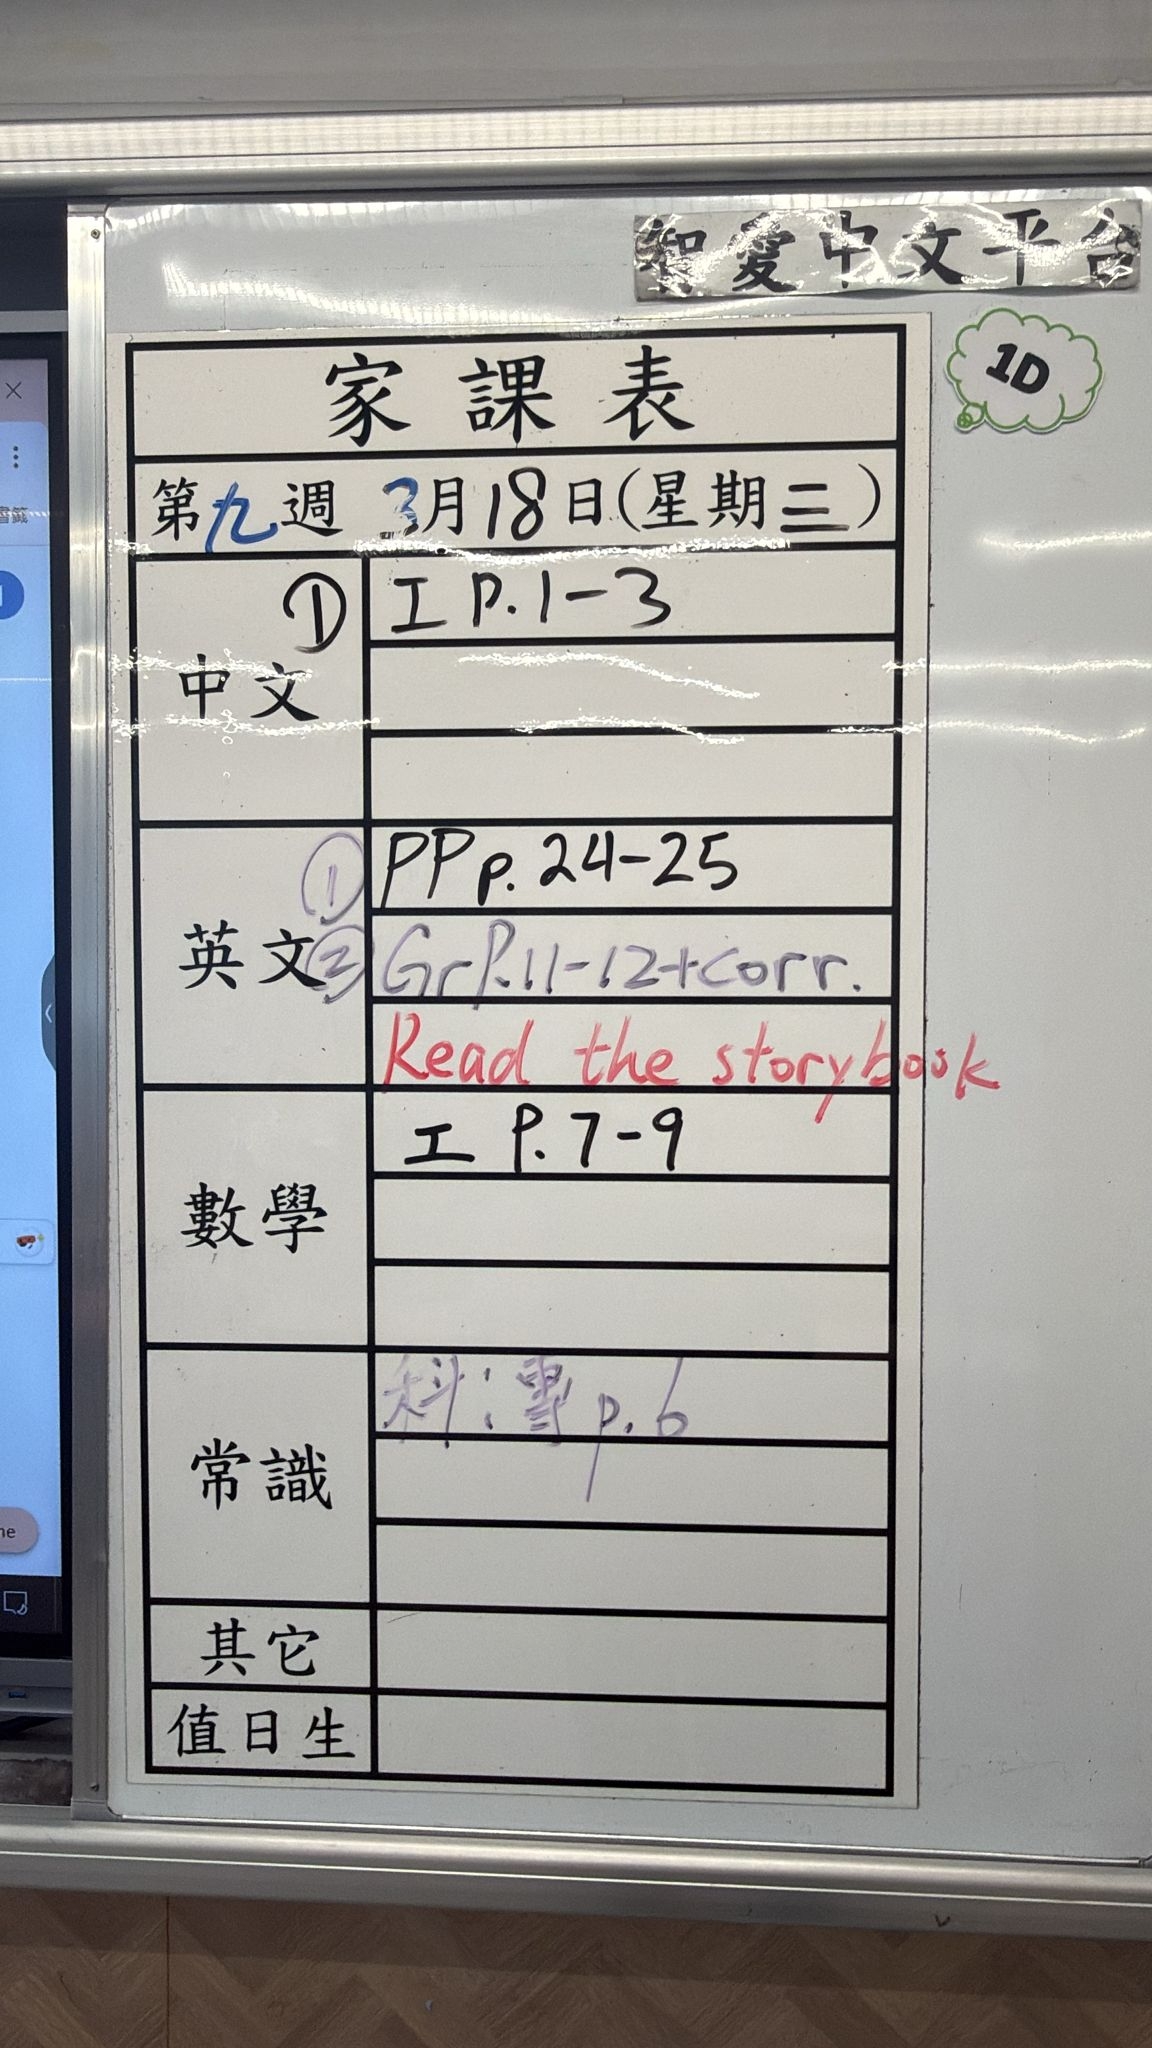 智愛中文平台
1D
家課表
第九週 3月18日(星期三)
中文
① 工 P.1-3
英文
① PP p.24-25
② Gr P.11-12+corr.
Read the storybook
數學
工 P.7-9
常識
科: p.6
其它
值日生